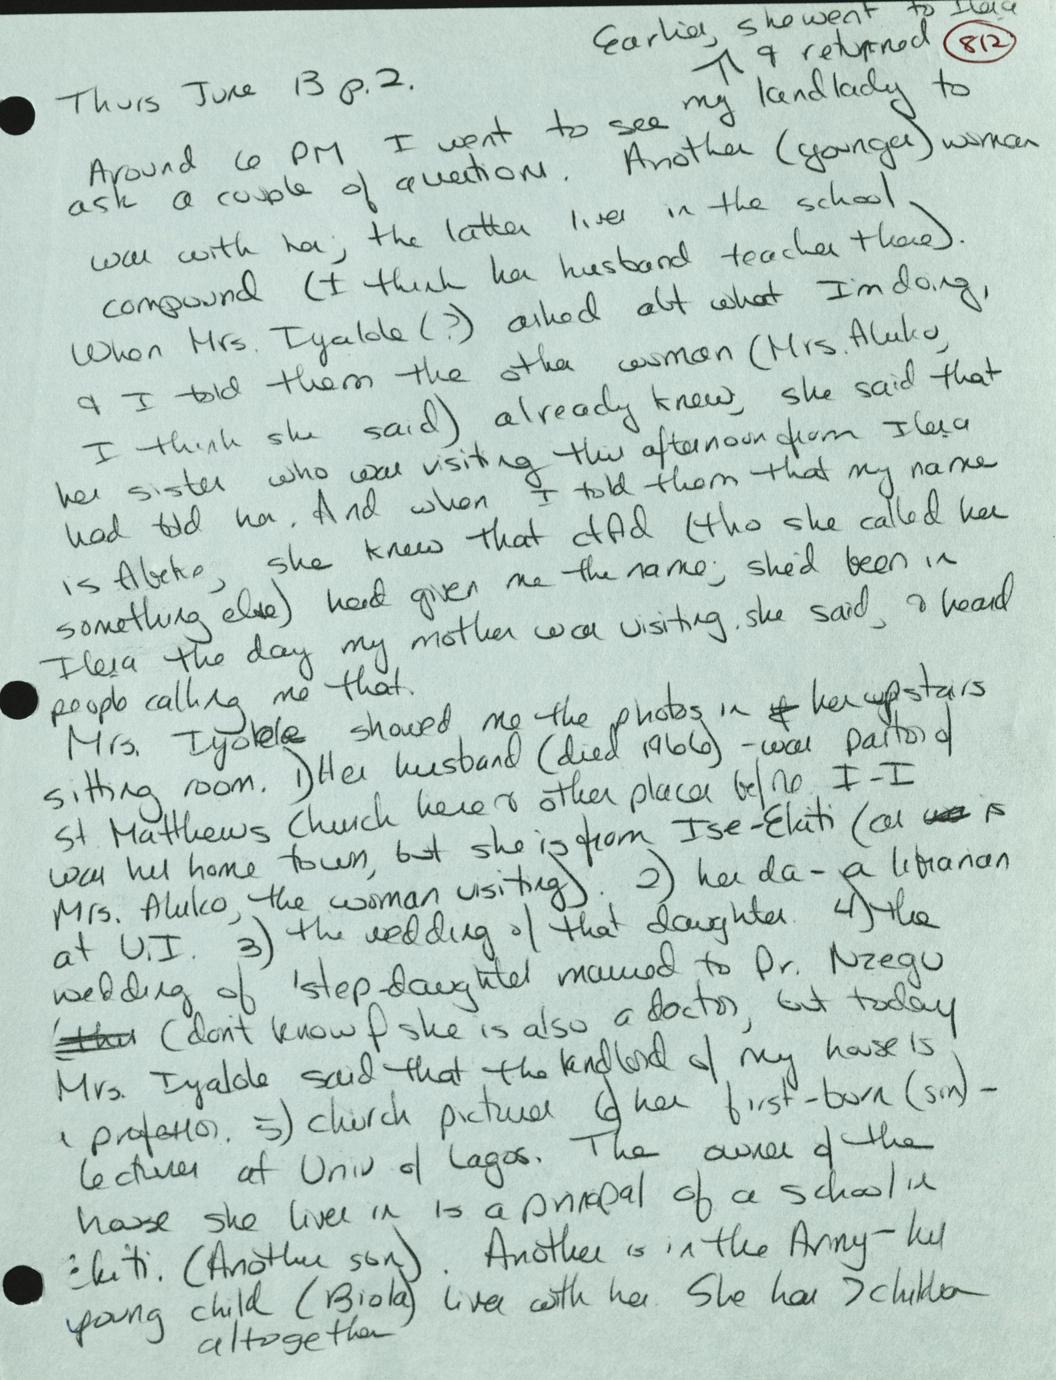 Earlier, she went to Ilesa
& returned
812
Thurs June 13 p.2.
Around 6 PM I went to see my landlady to
ask a couple of questions. Another (younger) woman
was with her; the latter lives in the school
compound (I think her husband teaches there).
When Mrs. Iyalode (?) asked abt what I'm doing,
& I told them the other woman (Mrs. Aluko,
I think she said) already knew, she said that
her sister who was visiting this afternoon from Ilesa
had told her. And when I told them that my name
is Abeke, she knew that (tho she called her
something else) had given me the name; she'd been in
Ilesa the day my mother was visiting, she said, & heard
people calling me that.
Mrs. Iyalode showed me the photos in her upstairs
sitting room. 1) Her husband (died 1966) - was pastor of
St Matthews Church here & other places before. I-I
was his home town, but she is from Ise-Ekiti (as is
Mrs. Aluko, the woman visiting). 2) her da - a librarian
at U.I. 3) the wedding of that daughter. 4) the
wedding of 'step-daughter married to Dr. Nzegu
(don't know if she is also a doctor, but today
Mrs. Iyalode said that the landlord of my house is
a professor. 5) church pictures 6) her first-born (son) -
lecturer at Univ of Lagos. The owner of the
house she lives in is a principal of a school in
Ekiti. (Another son). Another is in the Army - his
young child (Biola) lives with her. She has 7 children
altogether